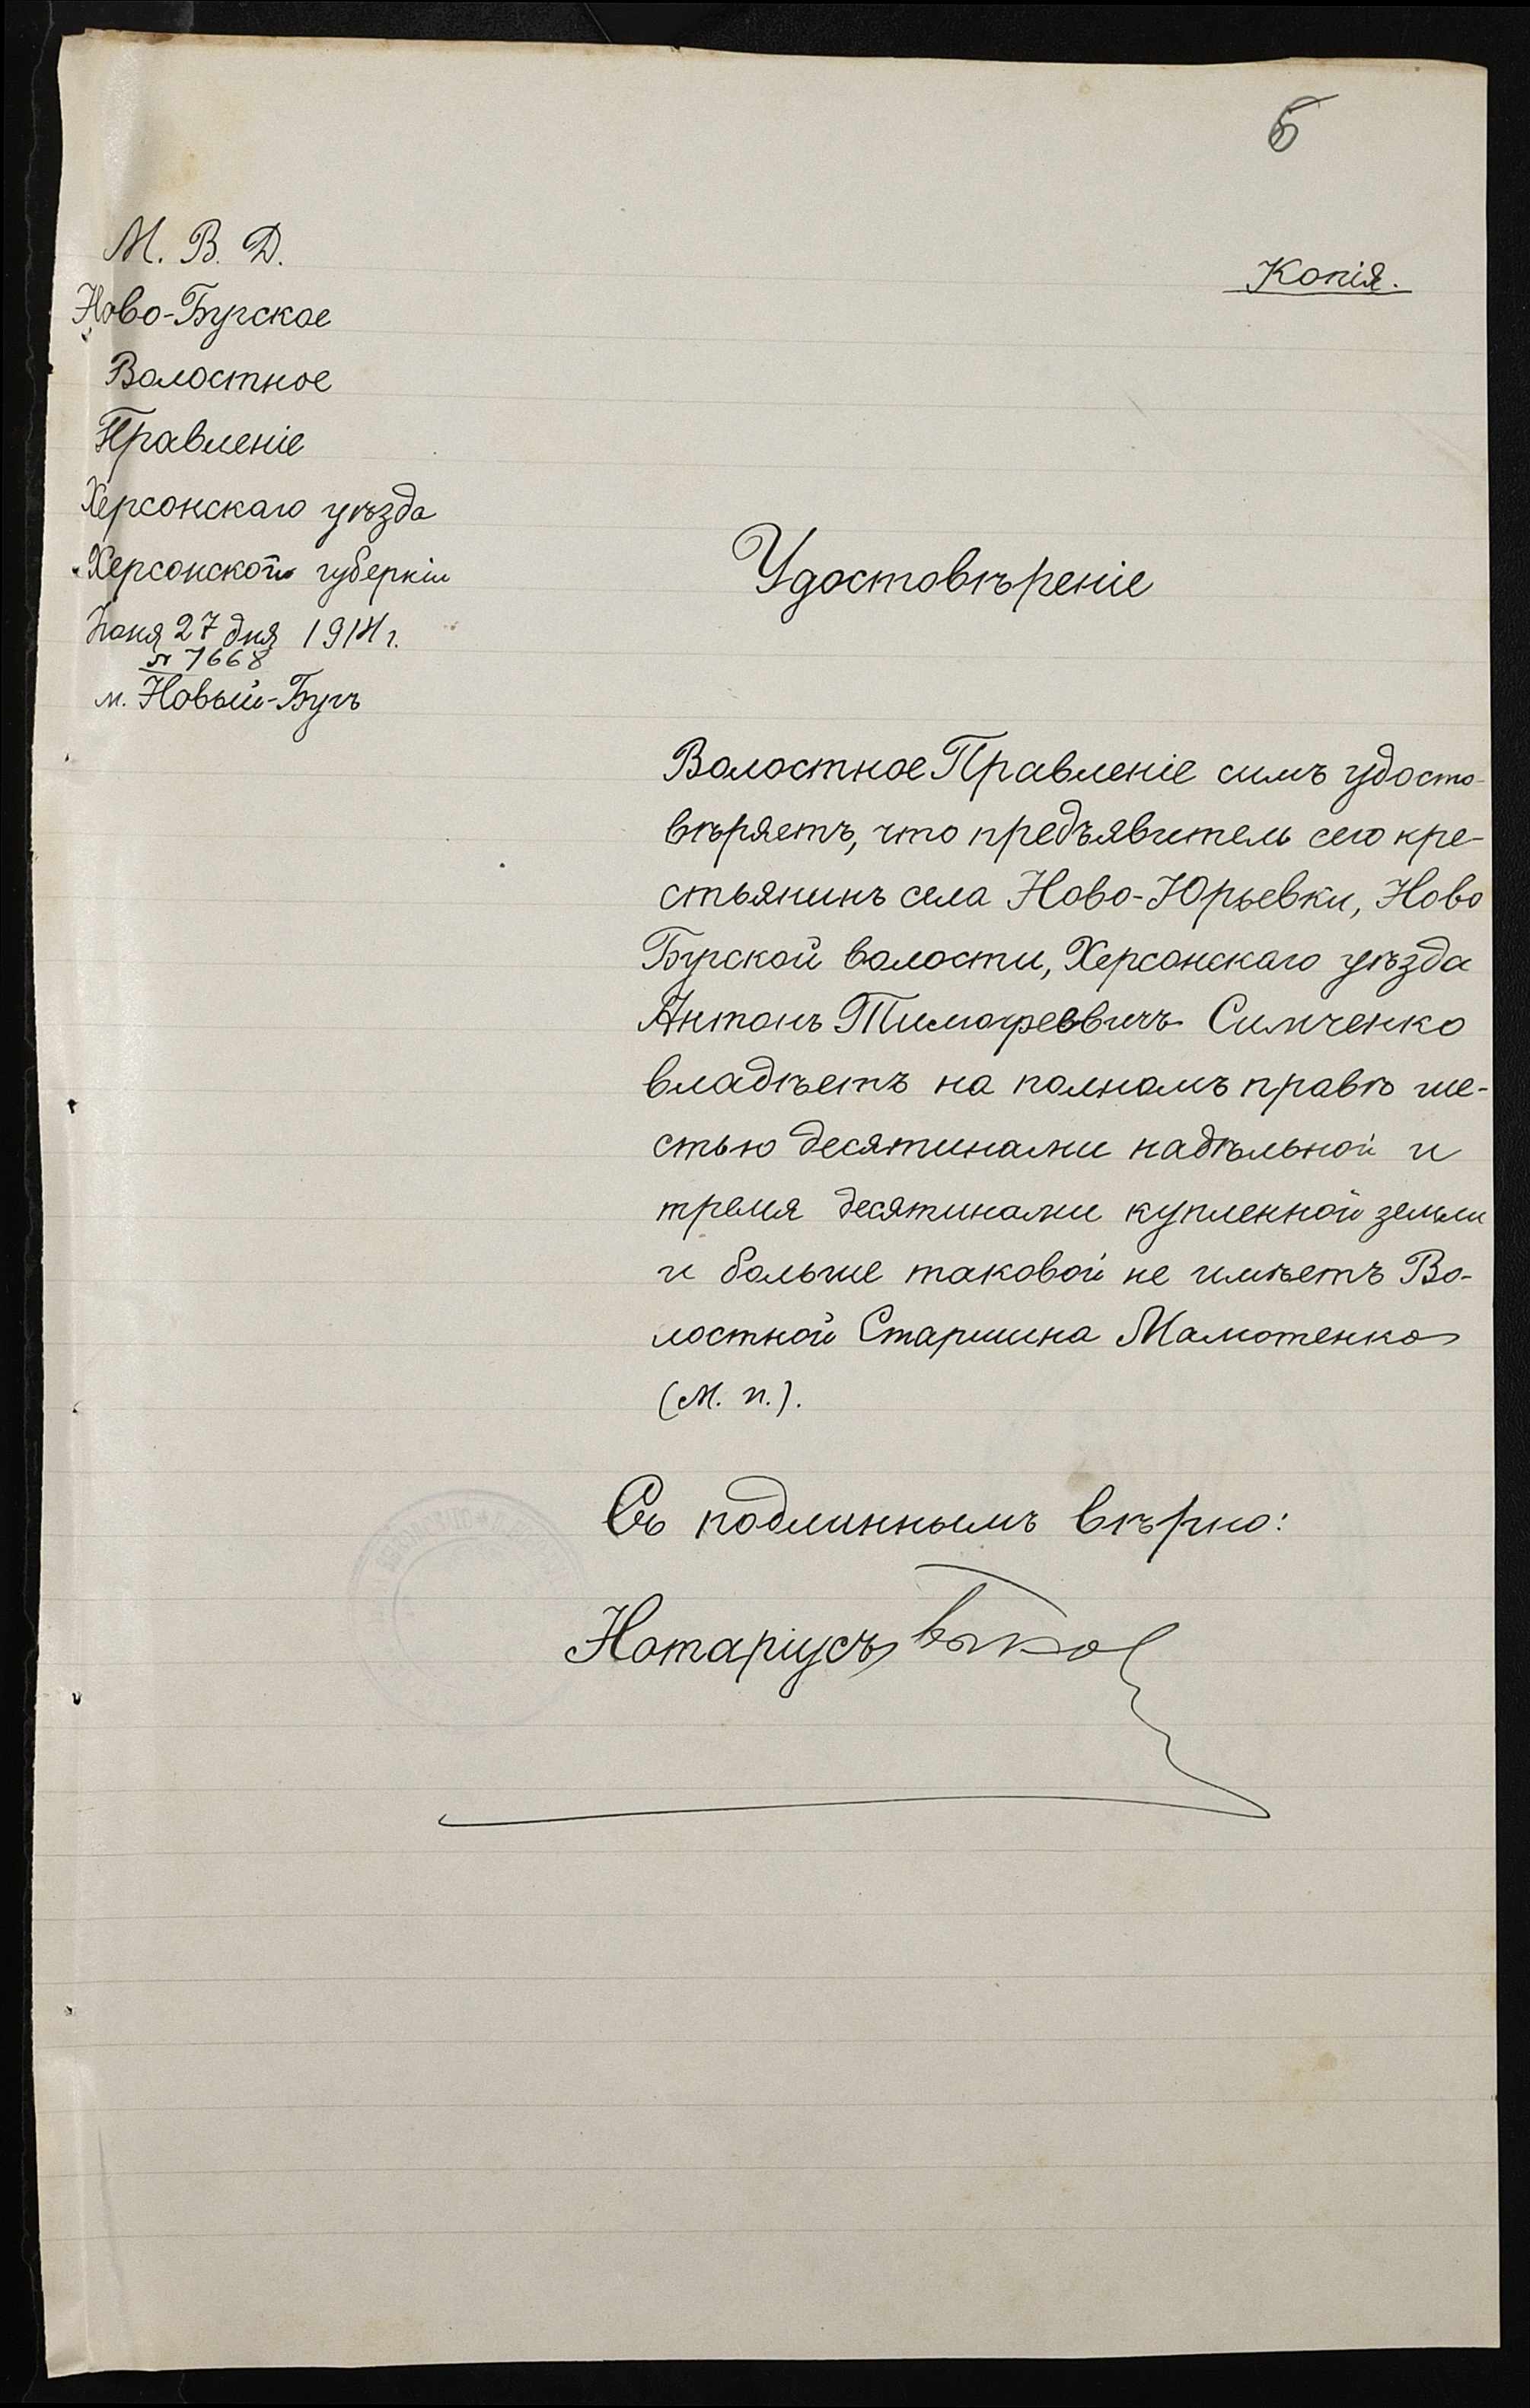 5
М. В. Д.
Копія.
Ново-Бугское
Волостное
Правленіе
Херсонскаго уѣзда
Херсонской губерніи
Іюня 27 дня 1914 г.
№ 7668
м. Новый-Бугъ
Удостовѣреніе
Волостное Правленіе симъ удосто-
вѣряетъ, что предъявитель сего кре-
стьянинъ села Ново-Юрьевки, Ново
Бугской волости, Херсонскаго уѣзда
Антонъ Тимофеевичъ Симченко
владѣетъ на полномъ правѣ ше-
стью десятинами надѣльной и
тремя десятинами купленной земли
и больше таковой не имѣетъ Во-
лостной Старшина Мамотенко
(М. п.).
Съ подлиннымъ вѣрно:
Нотаріусъ